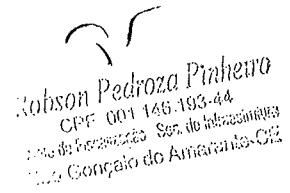 Robson Pedroza Pinheiro
CPF 001.146.193-44
de Fiscalização Sec. de Infraestrutura
Gonçalo do Amarante-CE